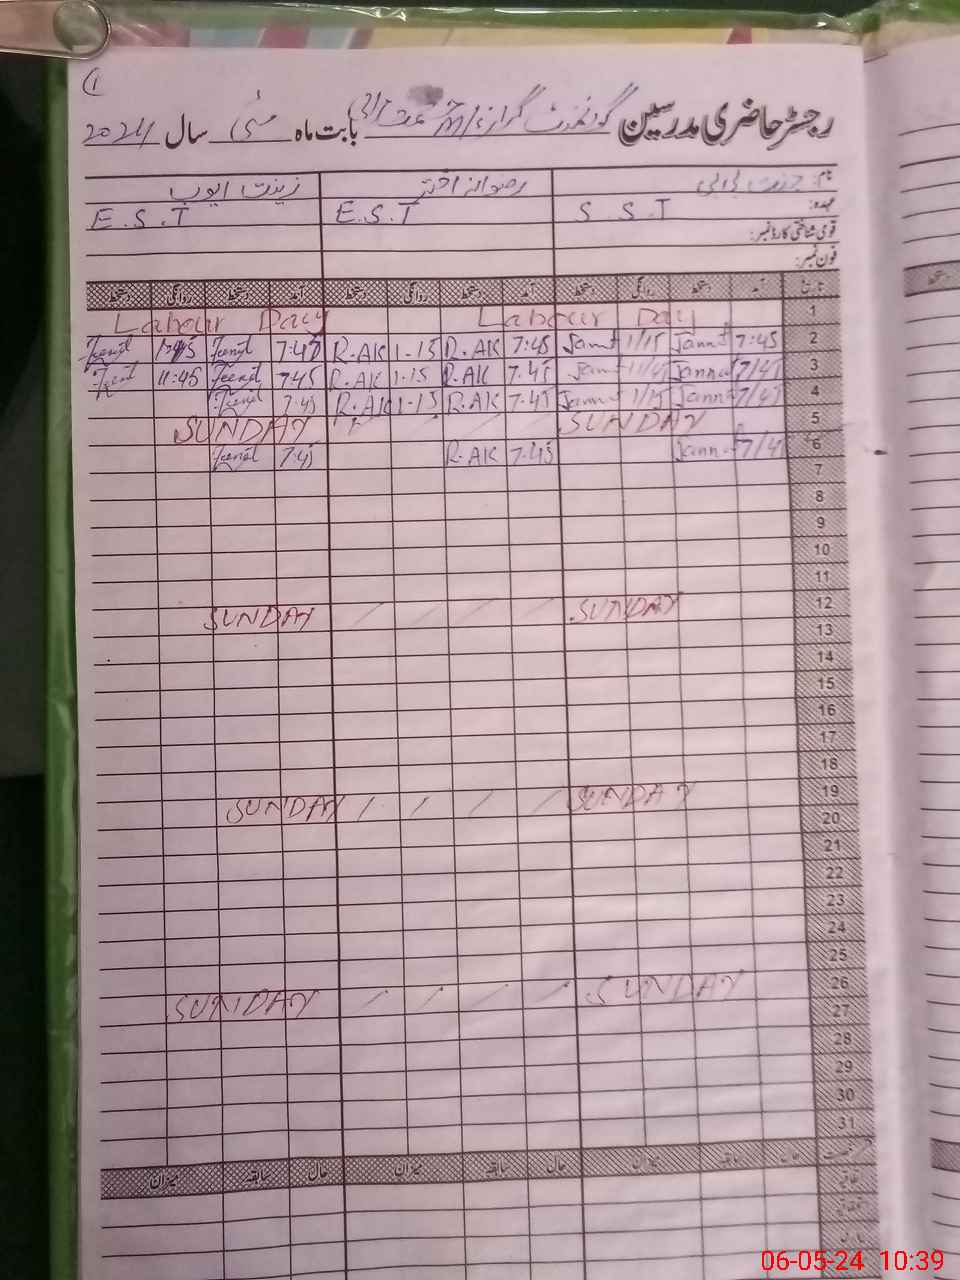 (1
رجسٹر حاضری مدرسین گورنمنٹ گرلز بابت ماہ مئی سال 2024
نام: جنت بی بی رضوانہ اختر زینت ایوب
عہدہ: S.S.T E.S.T E.S.T
قومی شناختی کارڈ نمبر:
فون نمبر:
تاریخ آمد دستخط روانگی دستخط آمد دستخط روانگی دستخط آمد دستخط روانگی دستخط
1 Labour Day Labour Day
2 7:45 Jannat 1/15 Jannat 7:45 R.AK 1-15 R.AK 7:45
3 7/45 Jannat 11/45 Jannat 7:45 R.AK 1-15 R.AK 7:45 11:45
4 7/45 Jannat 1/15 Jannat 7:45 R.AK 1-15 R.AK 7:45
5 SUNDAY / / / / SUNDAY
6 7/45 Jannat 7:45 R.AK 7:45
7
8
9
10
11
12 SUNDAY / / / / SUNDAY
13
14
15
16
17
18
19 SUNDAY / / / / SUNDAY
20
21
22
23
24
25
26 SUNDAY / / / / SUNDAY
27
28
29
30
31
رخصت حال سابقہ میزان حال سابقہ میزان حال سابقہ میزان
06-05-24 10:39